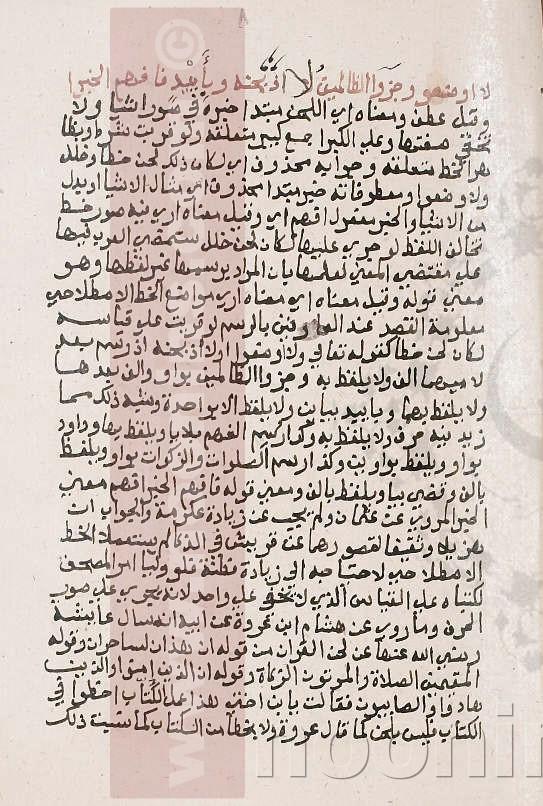 لا اوضعوا وجزوا الظالمين لا اذبحنه وبأييد فافهم الخبرا
وقيل عطف ومعناه اي اللحن مبتدا خبره في صور اشيا ولا
صفتها وعلي الكبرا جمع كبير متعلقه ولو قريت بقره وبظا
هر الخط متعلقه وجوابه محذوف اي لكان ذلك لحن خطا وخلل
ولا وضعوا ومعطوفاته خبر مبتدا محذوف اي مثال الاشيا او بدل
من الاشيا والخبر مفعول افهم اي وقيل معناه اي فيه صور خط
تخالف اللفظ لو جري عليها لكان لحن خلل ستعمضي العرب فيها
علي مقتضي المعني لعلمها بان المراد برسمها غير لفظها وهو
معني قوله وقيل معناه اي معناه اي مواضع الخط الاصطلاحي
معلومة القصد عند العارفين بالرسم لو قريت علي قياسه
لكان لحن خطا كقوله تعالي ولا اوضعوا اولا اذبحنه اذ رسم بعد
لاميهما الف ولا يلفظ به وجزوا الظالمين بواو والف بعدها
ولا يلفظ بهما وبأييد بياين ولا يلفظ الا بواحدة وشبه ذلك مما
زيد فيه حرف ولا يلفظ به وكذا رسم الفهم بلا يا ويلفظ بها وداود
بواو ويلفظ بواوين وكذا رسم الصلوات والزكوات بواو ويلفظ
بالف وقضي بيا ويلفظ بالف ومعني قوله فافهم الخبر افهم معني
الخبر المروي عن عثمان ولم يجب عن زيادة عكرمة والجواب ان
هزيلا وثقيفا لقصورهما عن قريش في الذكا لم يستعملا الخط
الاصطلاحي لاحتياجه الي زيادة فطنة فلو وليا امر المصحف
لكتباه علي القياس الذي لا علي واحد لانه يجري علي صوب
الحرف وما روي عن هشام ابن عروة عن ابيه انه سال عايشة
رضي الله عنها عن لحن القران من قوله ان هذان لساحران وقوله
المقيمين الصلاة والموتون الزكاة وقوله ان الذين امنوا والذين
هادوا والصابيون فقالت يا بن اختي هذا عمل الكتاب اخطوا في
الكتاب فليس بلحن كما قال عروة ولا بخطا من الكتاب كما ذلك
noorin